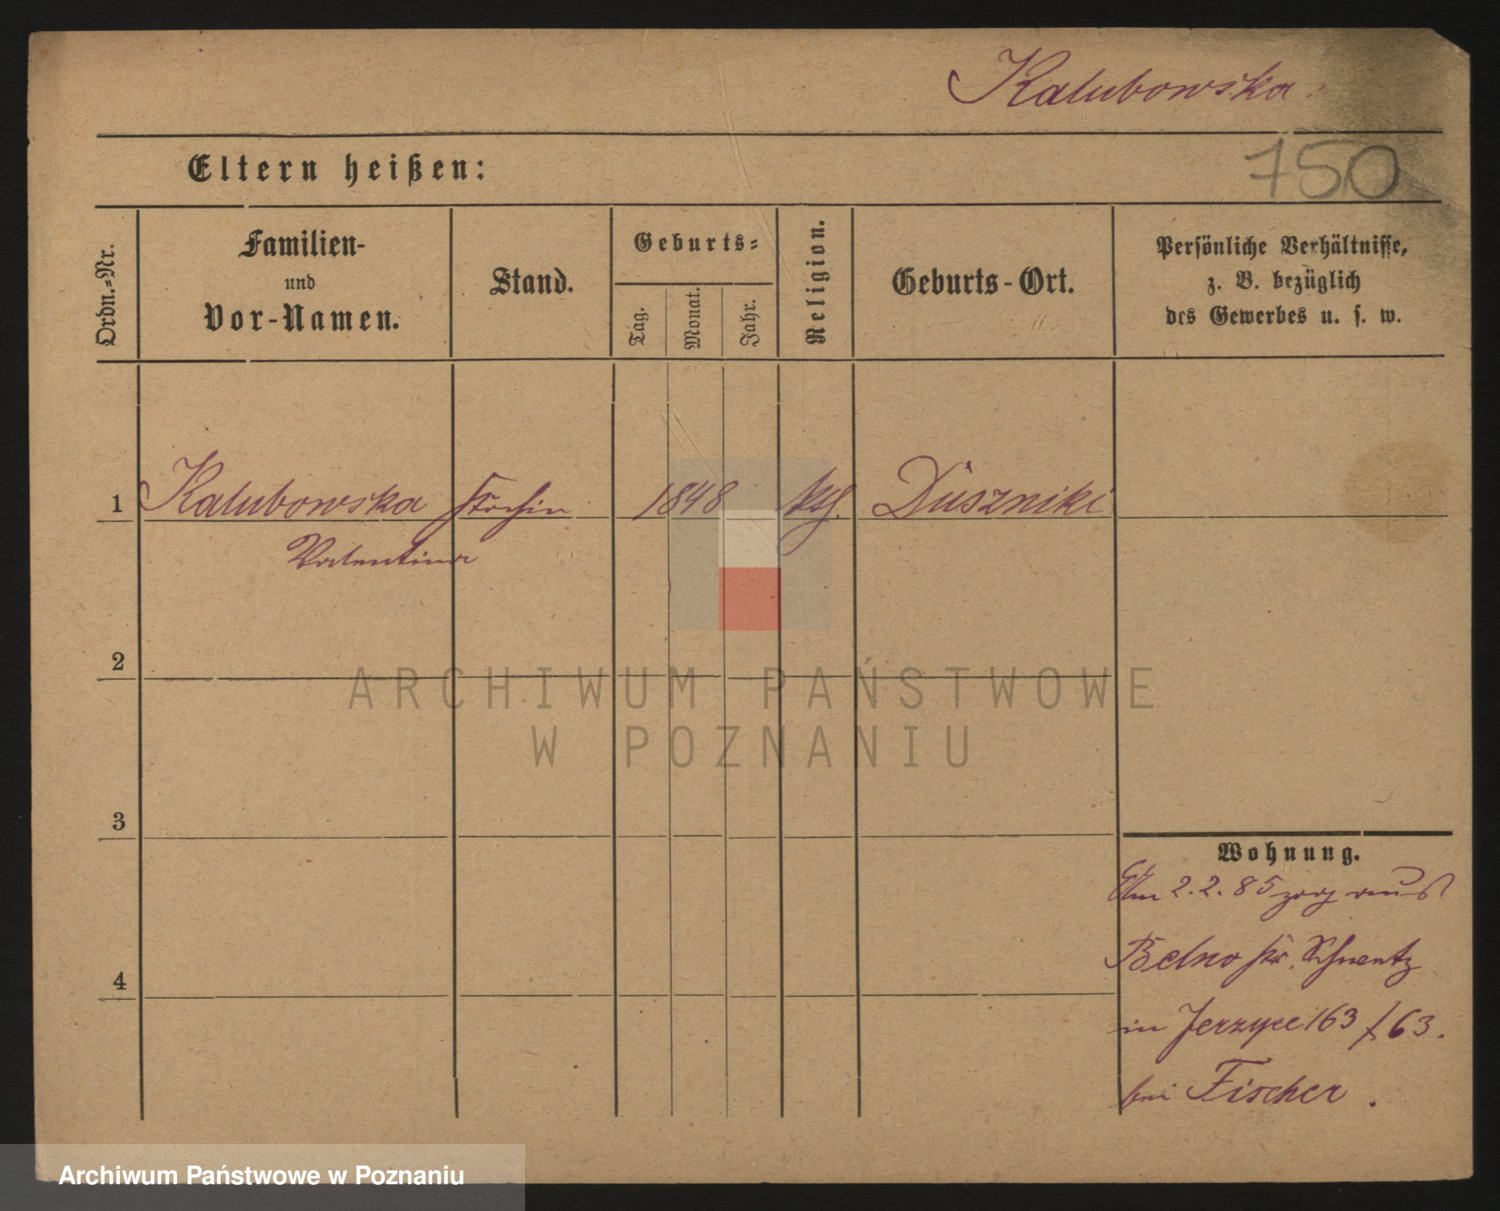 Kalubowska
Eltern heißen:
750
Ordn.-Nr.
Familien-
und
Vor-Namen.
Stand.
Geburts-
Tag.
Monat.
Jahr.
Religion.
Geburts-Ort.
Persönliche Verhältnisse,
z. B. bezüglich
des Gewerbes u. s. w.
1 Kalubowska Köchin 1848 kth. Duszniki
Valentina
2
ARCHIWUM PAŃSTWOWE
W POZNANIU
3
Wohnung.
Am 2.2.85 zog aus
Bedno Kr.
4
in Jerzyce 163/63.
bei Fischer.
Archiwum Państwowe w Poznaniu